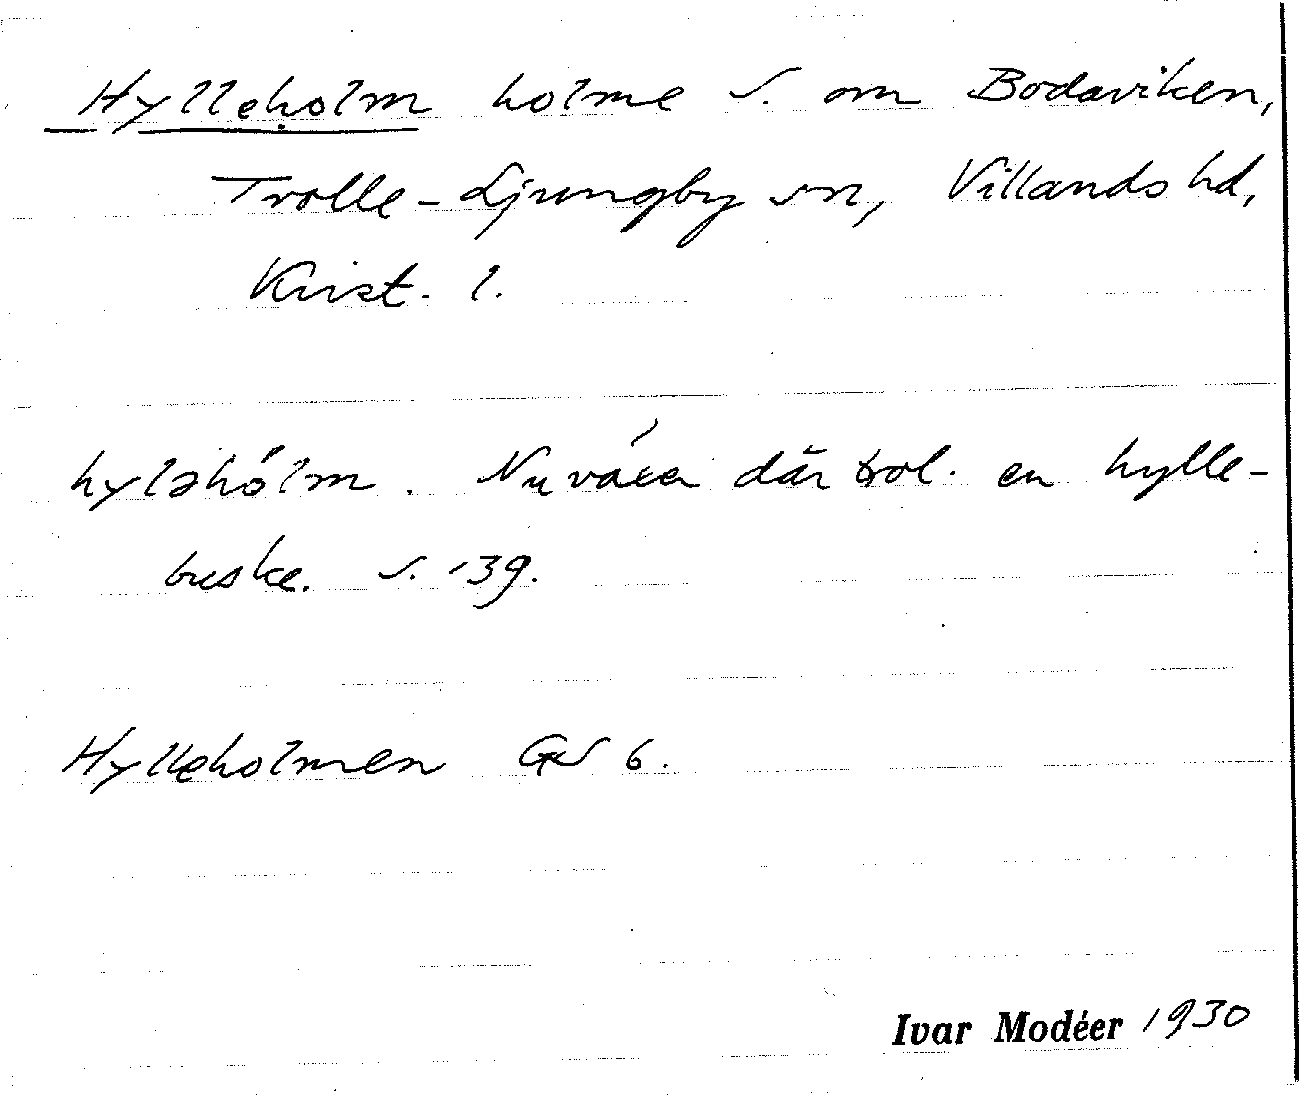 Hylleholm holme S. om Bodaviken,
Trolle-Ljungby sn, Villands hd,
Krist. l.
hyləhólm. Nu växer där bol. en hylle-
buske. S. 39.
Hylleholmen GS 6.
Ivar Modéer 1930